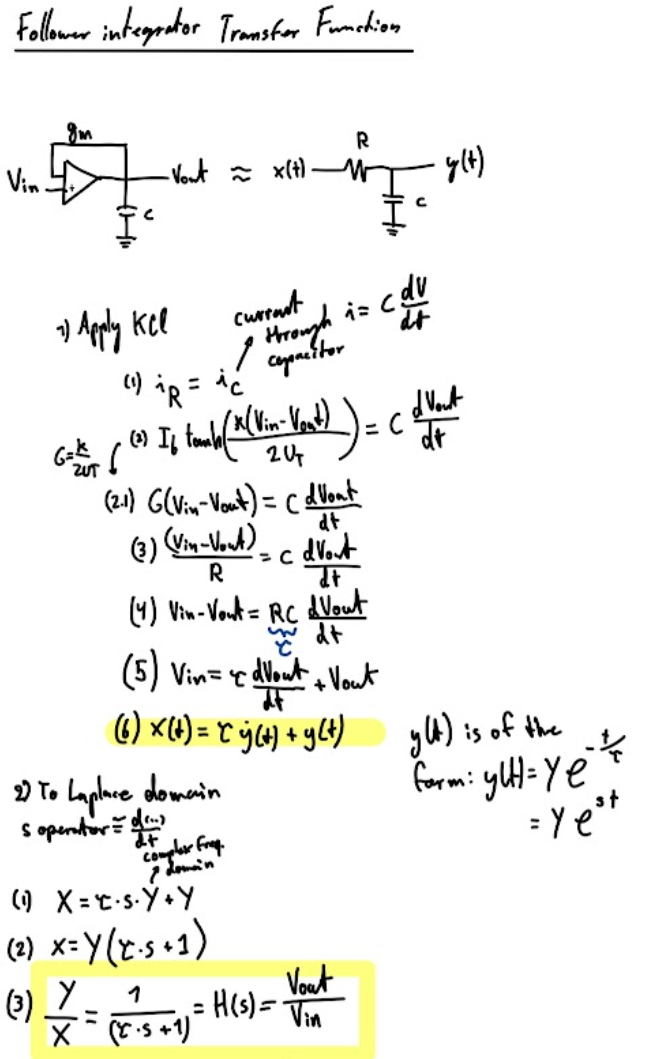 Follower integrator Transfer Function
gm
Vin + Vout ≈ x(t) R y(t)
C C
1) Apply KCL
current through capacitor i = C dV/dt
(1) iR = iC
(2) Ib tanh(κ(Vin-Vout)/2UT) = C dVout/dt
G=k/2UT
(2.1) G(Vin-Vout) = C dVout/dt
(3) (Vin-Vout)/R = C dVout/dt
(4) Vin-Vout = RC dVout/dt
τ
(5) Vin = τ dVout/dt + Vout
(6) x(t) = τ ẏ(t) + y(t)
y(t) is of the
form: y(t) = Y e^(-t/τ)
= Y e^(st)
2) To Laplace domain
s operator ≅ d(...)/dt
complex freq. domain
(1) X = τ·s·Y + Y
(2) X = Y(τ·s + 1)
(3) Y/X = 1/(τ·s + 1) = H(s) = Vout/Vin